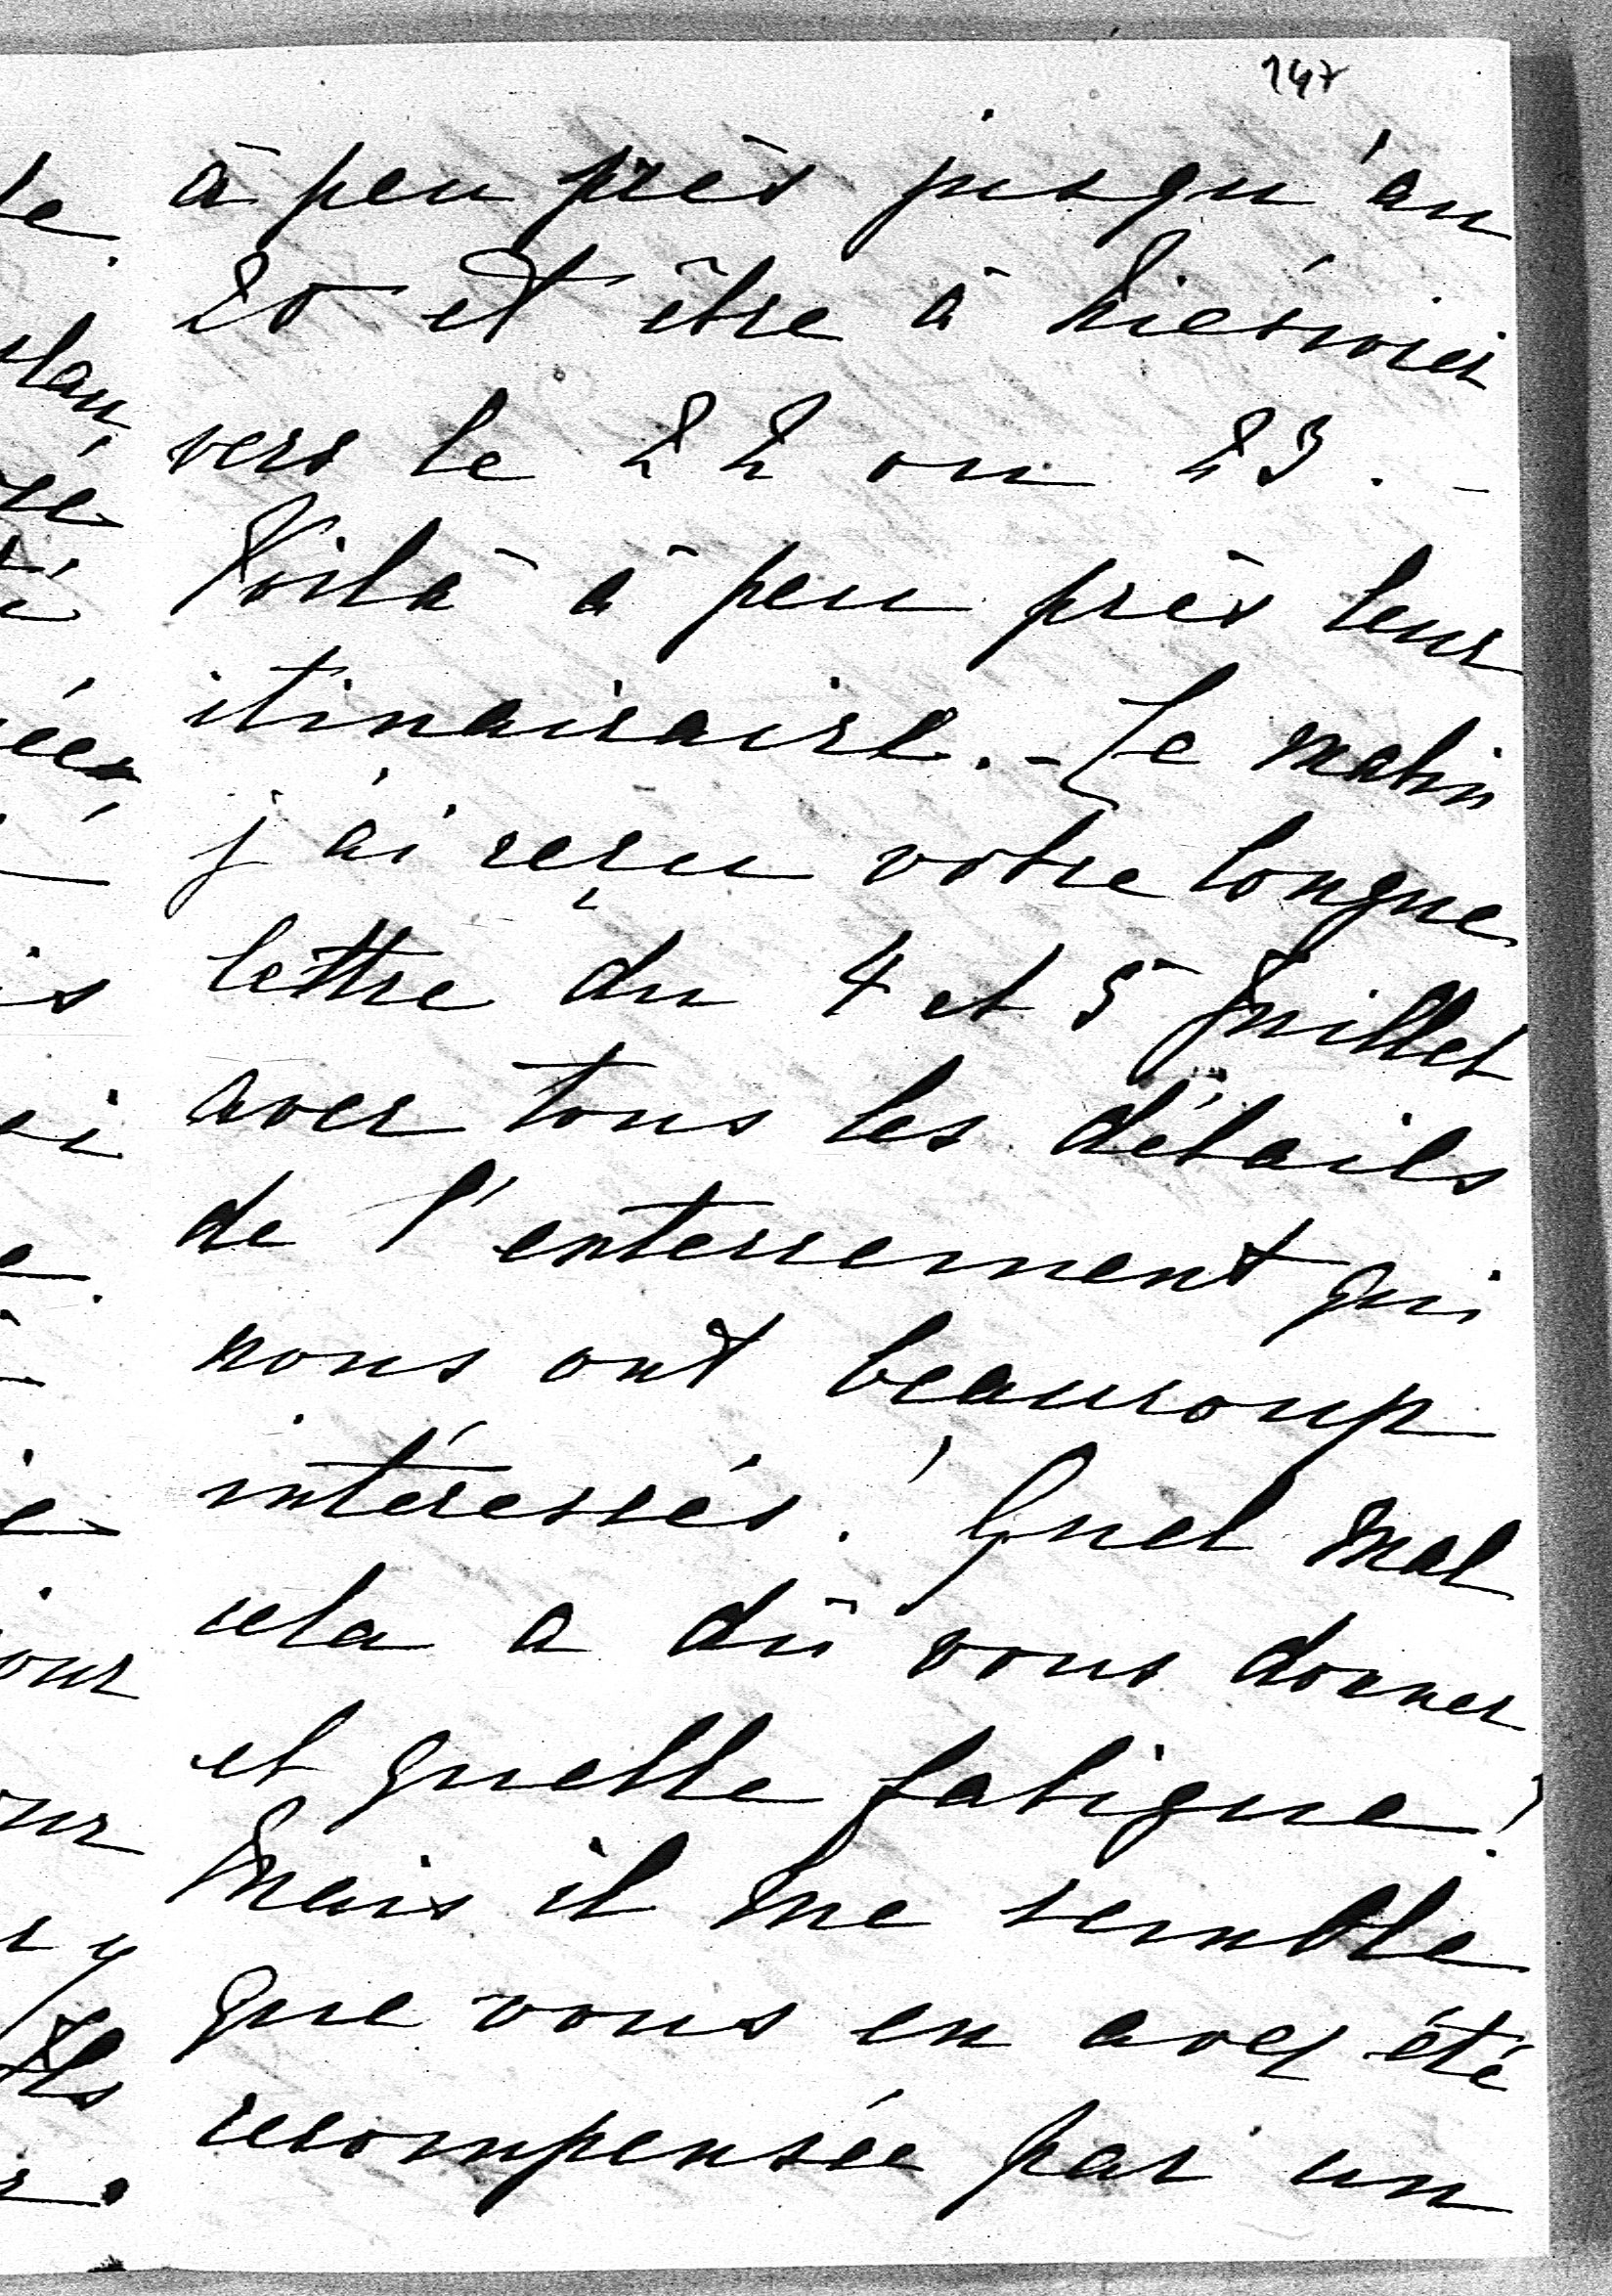 147
à peu près jusqu'au
20 et être à
vers le 22 ou 23. -
Voilà à peu près leur
itinairaire. - Ce matin
j'ai reçu votre longue
lettre du 4 et 5 Juillet
avec tous les détails
de l'enterrement qui
nous ont beaucoup
intéressés. Quel mal
cela a dû vous donner
et quelle fatigue!
Mais il me semble
que vous en avez été
recompensée par un